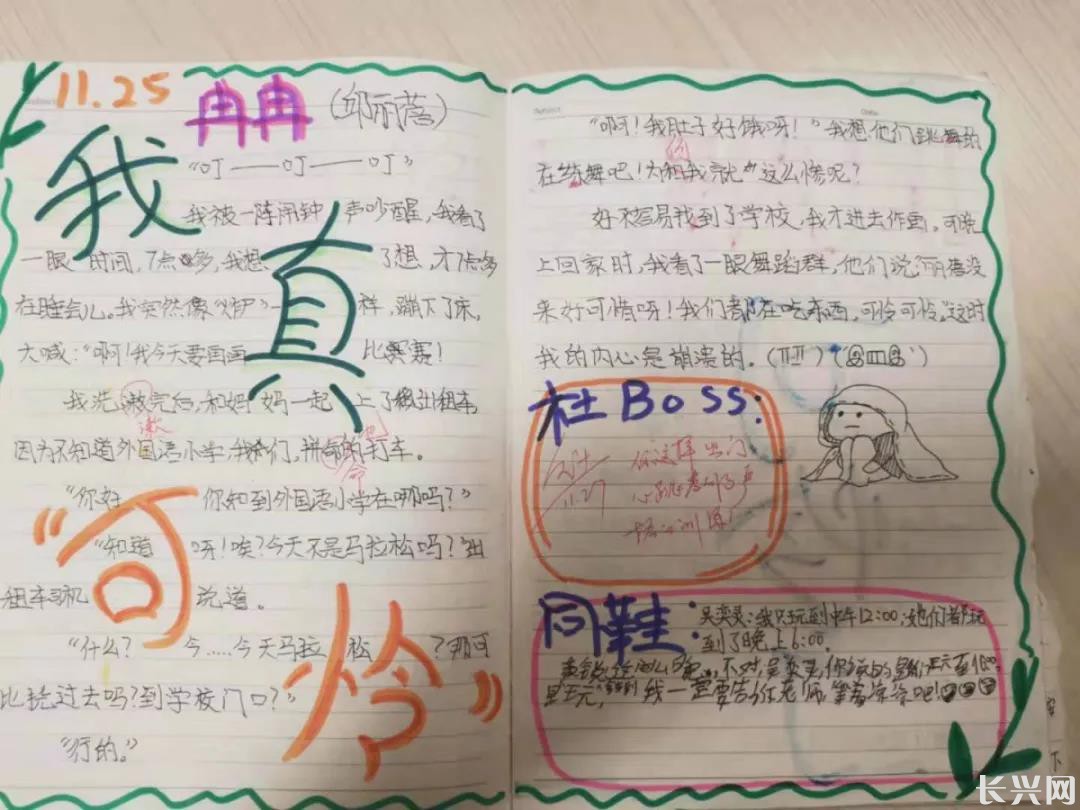 11.25
冉冉(邱丽蓓)
我真"可怜"
"叮——叮——叮"
我被一阵闹钟声吵醒，我看了
一眼时间，7点多，我想了想，才7点多
在睡会儿。我突然像"炉"一样，蹦下了床，
大喊："啊！我今天要画画比赛赛！
我洗漱完后，和妈妈一起上了出租车，
因为不知道外国语小学，我们，拼命的打车。
"你好 你知到外国语小学在哪吗？"
"知道呀！唉？今天不是马拉松吗？"出
租车司机说道。
"什么？今……今天马拉松？那可
比绕过去吗？到学校门口？"
"行的。"
"啊！我肚子好饿呀！"我想他们跳舞的
在练舞吧！为啥我就这么惨呢？
好不容易找到了学校，我才进去作画，可晚
上回家时，我看了一眼舞蹈群，他们说丽蓓没
来好可惜呀！我们都在吃东西，可怜可怜。"这时
我的内心是崩溃的。
杜Boss：
11.27
你这样出门
同鞋：
吴奕灵：我只玩到中午12:00，她们都玩
到了晚上6:00.
不对，吴奕灵，你
我一定要告诉任老师，等着
长兴网